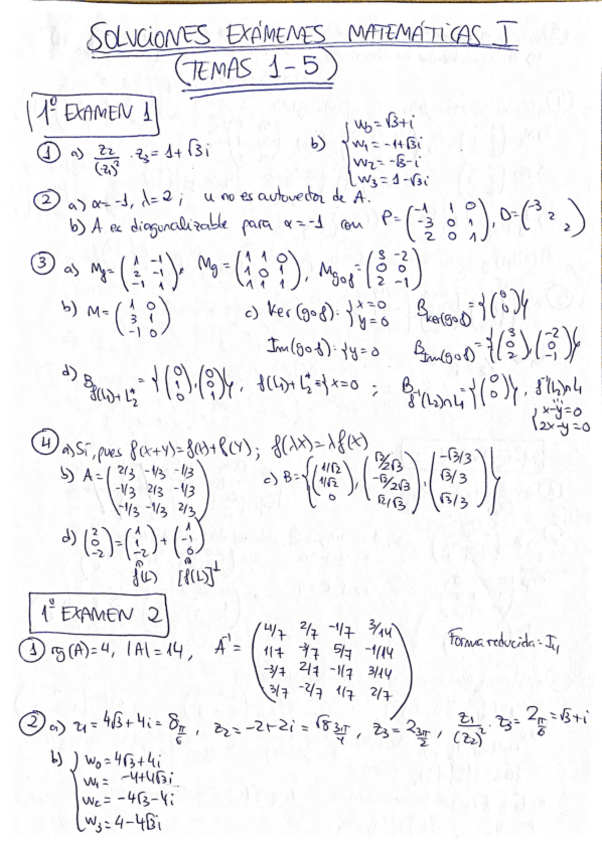 SOLUCIONES EXÁMENES MATEMÁTICAS I
(TEMAS 1-5)
1º EXAMEN 1
① a) z₂/(z₁)² · z₃ = 1+√3i b) { w₀=√3+i
w₁=-1+√3i
w₂=-√3-i
w₃=1-√3i
② a) α=-1, λ=2; u no es autovector de A.
b) A es diagonalizable para α=-1 con P=(-1 1 0; -3 0 1; 2 0 1), D=(-3 2 2)
③ a) Mf=(1 -1; 2 -1; -1 1), Mg=(1 1 0; 1 0 1; 1 1 1), Mgof=(3 -2; 0 0; 2 -1)
b) M=(1 0; 3 1; -1 0) c) Ker(gof): {x=0 y=0 B Ker(gof)={(0 0)}
Im(gof): {y=0 B Im(gof)={(3 0 2),(-2 0 -1)}
d) B f(L₁)+L₂*={(0 1 0),(0 0 1)}, f(L₁)+L₂*={x=0 ; B f⁻¹(L₂)∩L₁={(0 0)}, f⁻¹(L₂)∩L₁
{x-y=0
2x-y=0
④ a) Sí, pues f(x+y)=f(x)+f(y); f(λx)=λf(x)
b) A=(2/3 -1/3 -1/3; -1/3 2/3 -1/3; -1/3 -1/3 2/3) c) B={(1/√2 1/√2 0),(√2/2√3 -√2/2√3 √2/√3),(-√3/3 √3/3 √3/3)}
d) (2 0 -2)=(1 1 -2)+(1 -1 0)
f(L) [f(L)]⊥
1º EXAMEN 2
① rg(A)=4, |A|=14, A⁻¹=(4/7 2/7 -1/7 3/14; 1/7 -3/7 5/7 -1/14; -3/7 2/7 -1/7 3/14; 3/7 -2/7 1/7 2/7) Forma reducida: I₄
② a) z₁=4√3+4i=8 π/6, z₂=-2+2i=√8 3π/4, z₃=2 3π/2, z₁/(z₂)² · z₃=2 π/6=√3+i
b) { w₀=4√3+4i
w₁=-4+4√3i
w₂=-4√3-4i
w₃=4-4√3i